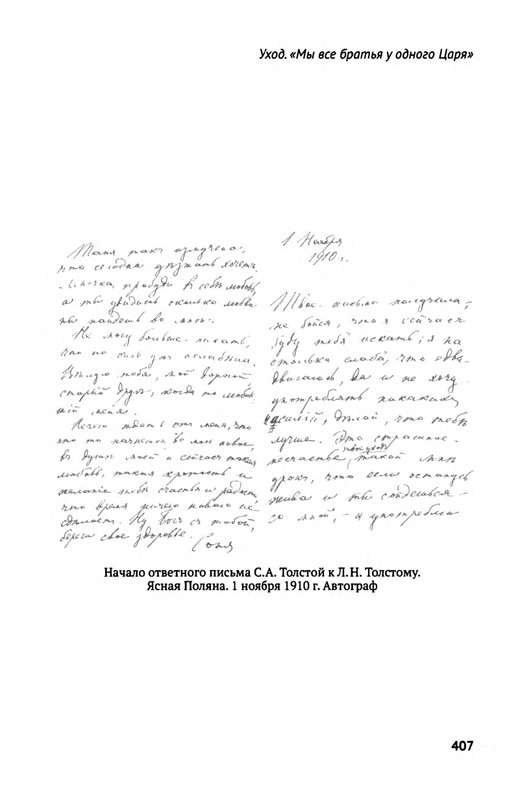 Уход. «Мы все братья у одного Царя»
Таня такъ измучена,
что сегодня уѣзжать хочетъ.
Левочка, пробуди въ себѣ любовь,
а ты увидишь сколько любви
ты найдешь во мнѣ.
Не могу больше писать,
что-то ужъ ослабѣла.
Цѣлую тебя, мой дорогой
старый другъ, когда то любив-
шій меня.
Нечего ждать отъ меня, что
что то начнется во мнѣ новое,
въ душѣ моей и сейчасъ такая
любовь, такая кротость и
желаніе тебѣ счастья и радости,
что время ничего новаго не
сдѣлаетъ. Ну Богъ съ тобой,
береги свое здоровье.
Соня
1 Ноября
1910 г.
Твое письмо получила;
не бойся, что я сейчасъ
буду тебя искать; я на
столько слаба, что едва
двигаюсь, да и не хочу
употреблять никакихъ
насилій, дѣлай, что тебѣ
лучше. Это страшное
несчастье, твой уходъ, такой мнѣ
урокъ, что если останусь
жива и ты сойдешься
со мной, – я употреблю
Начало ответного письма С.А. Толстой к Л.Н. Толстому.
Ясная Поляна. 1 ноября 1910 г. Автограф
407